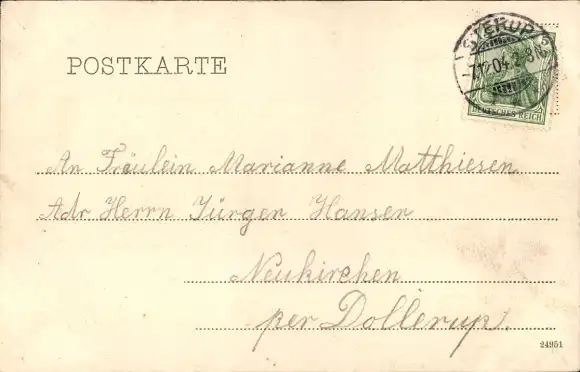 POSTKARTE
STERUP
7.1.04.2-3N.
DEUTSCHES REICH
An Fräulein Marianne Matthiesen
Adr Herrn Jürger Hanser
Neukirchen
per Dollerup.
24951